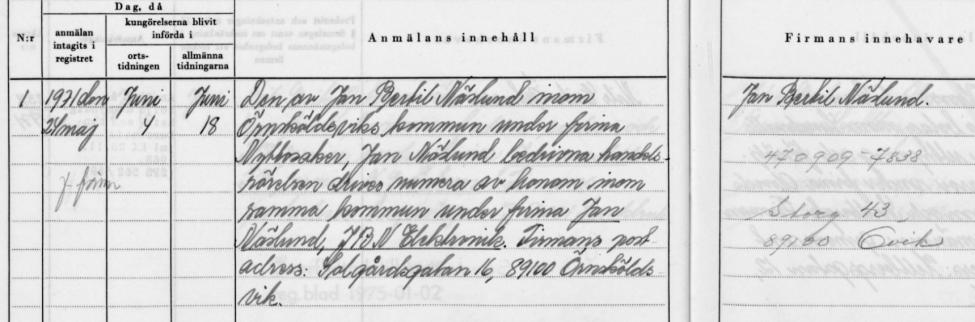 Dag, då
N:r
anmälan
intagits i
registret
kungörelserna blivit
införda i
orts-
tidningen
allmänna
tidningarna
Anmälans innehåll
Firmans innehavare
1 1971 den Juni Juni Den av Jan Bertil Näslund inom Jan Bertil Näslund.
24 maj 4 18 Örnsköldsviks kommun under firma
Nyttosaker, Jan Näslund bedrivna handels- 470909-7838
rörelsen drives numera av honom inom
samma kommun under firma Jan Storg 43
Näslund, JBN Elektronik. Firmans post- 89100 Övik
adress: Solgårdsgatan 16, 89100 Örnskölds-
vik.
blad 1975-01-02